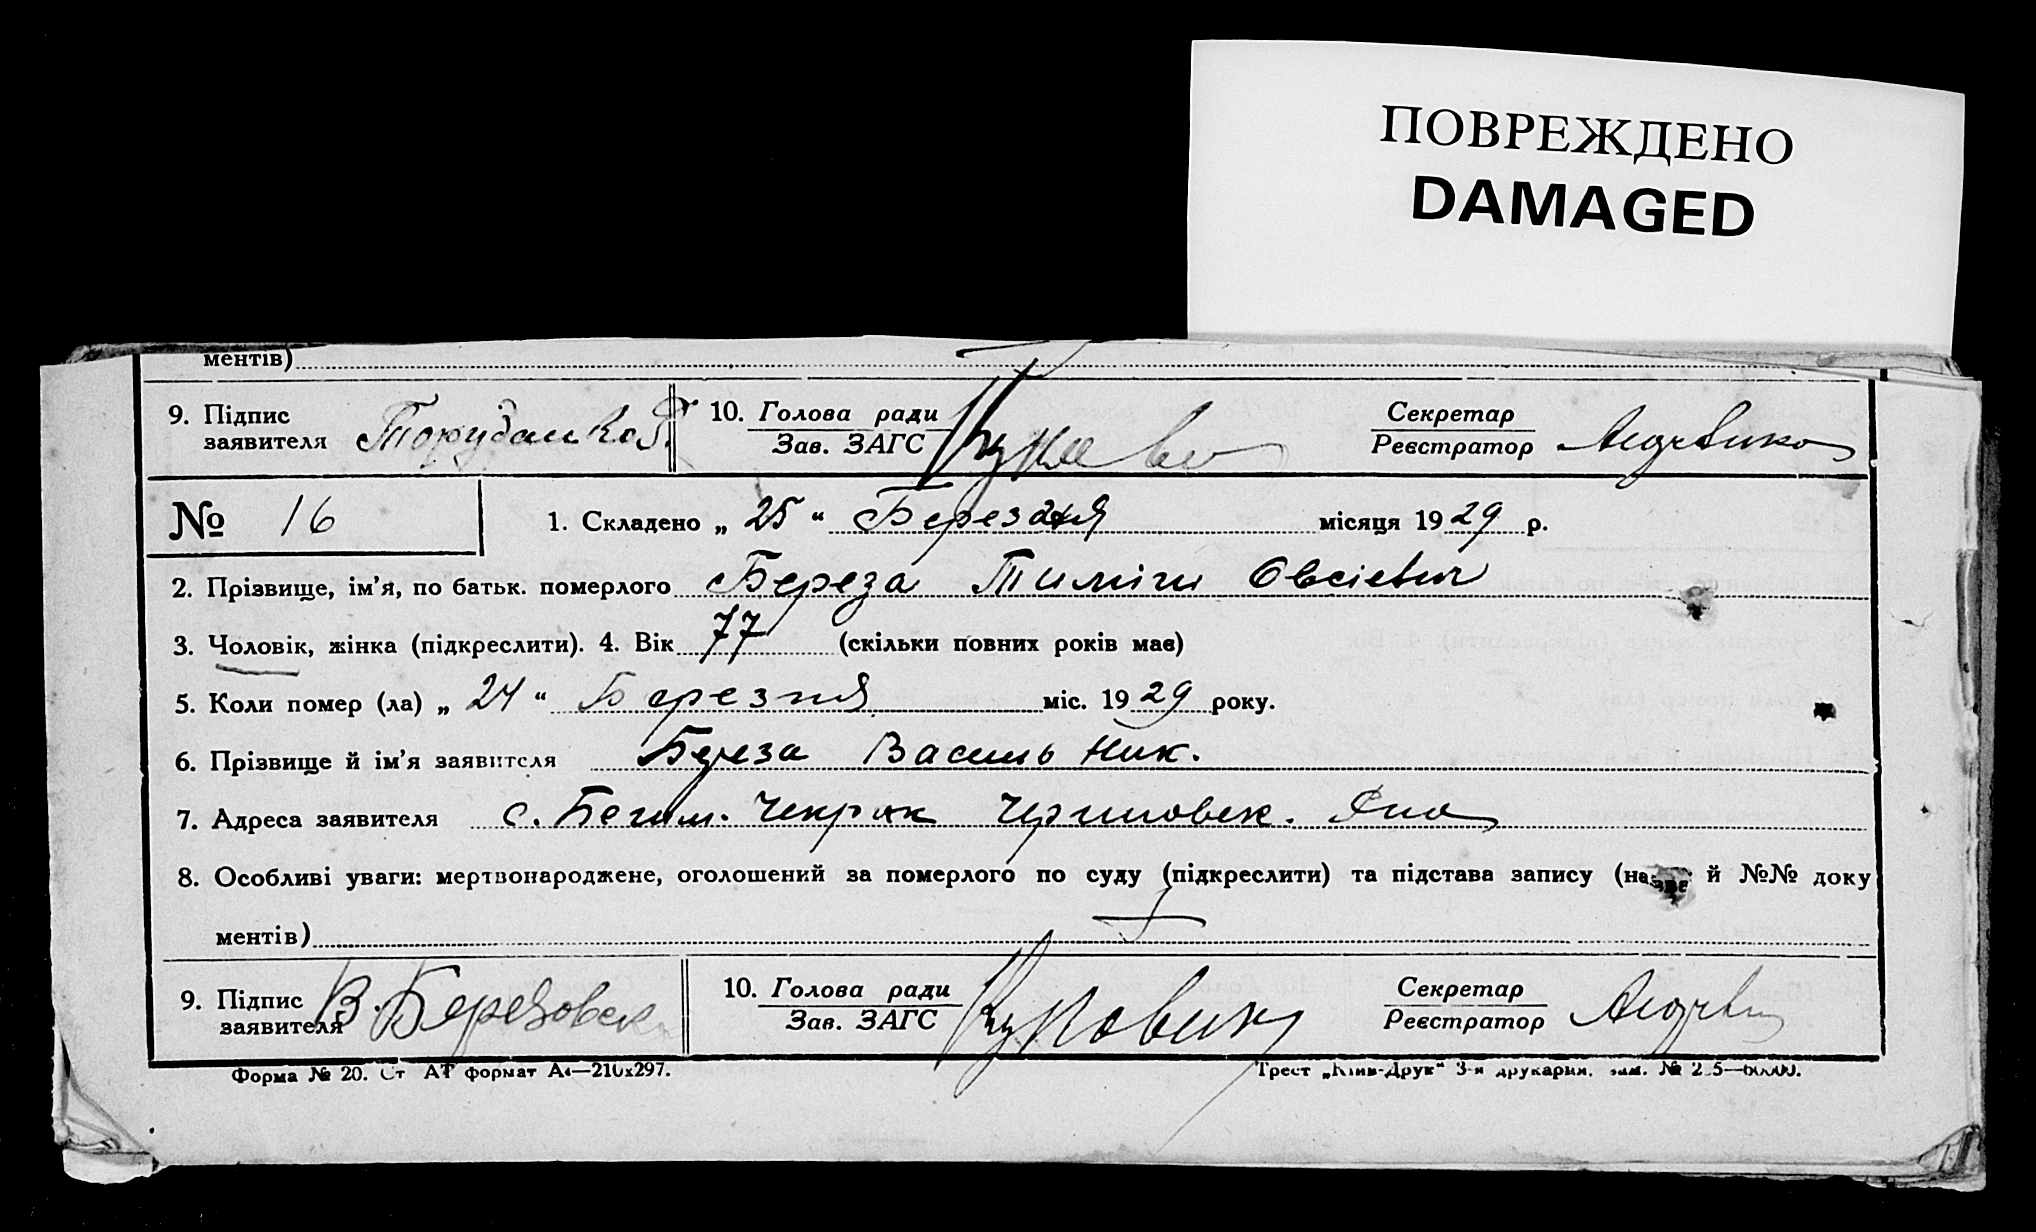 ПОВРЕЖДЕНО
DAMAGED
ментів)
9. Підпис заявителя 10. Голова ради Зав. ЗАГС Секретар Реєстратор
№ 16 1. Складено „ 25 “ Березня місяця 19 29 р.
2. Прізвище, ім’я, по батьк. померлого Береза Тиміш Овсієвич
3. Чоловік, жінка (підкреслити). 4. Вік 77 (скільки повних років має)
5. Коли помер (ла) „ 24 “ Березня міс. 19 29 року.
6. Прізвище й ім’я заявителя Береза Василь Ник.
7. Адреса заявителя с.
8. Особливі уваги: мертвонароджене, оголошений за померлого по суду (підкреслити) та підстава запису (назва й №№ доку
ментів)
9. Підпис заявителя В. 10. Голова ради Зав. ЗАГС Секретар Реєстратор
Форма № 20. Ст формат А4—210х297. Трест „Київ-Друк“ 3-я друкарня, зам. №